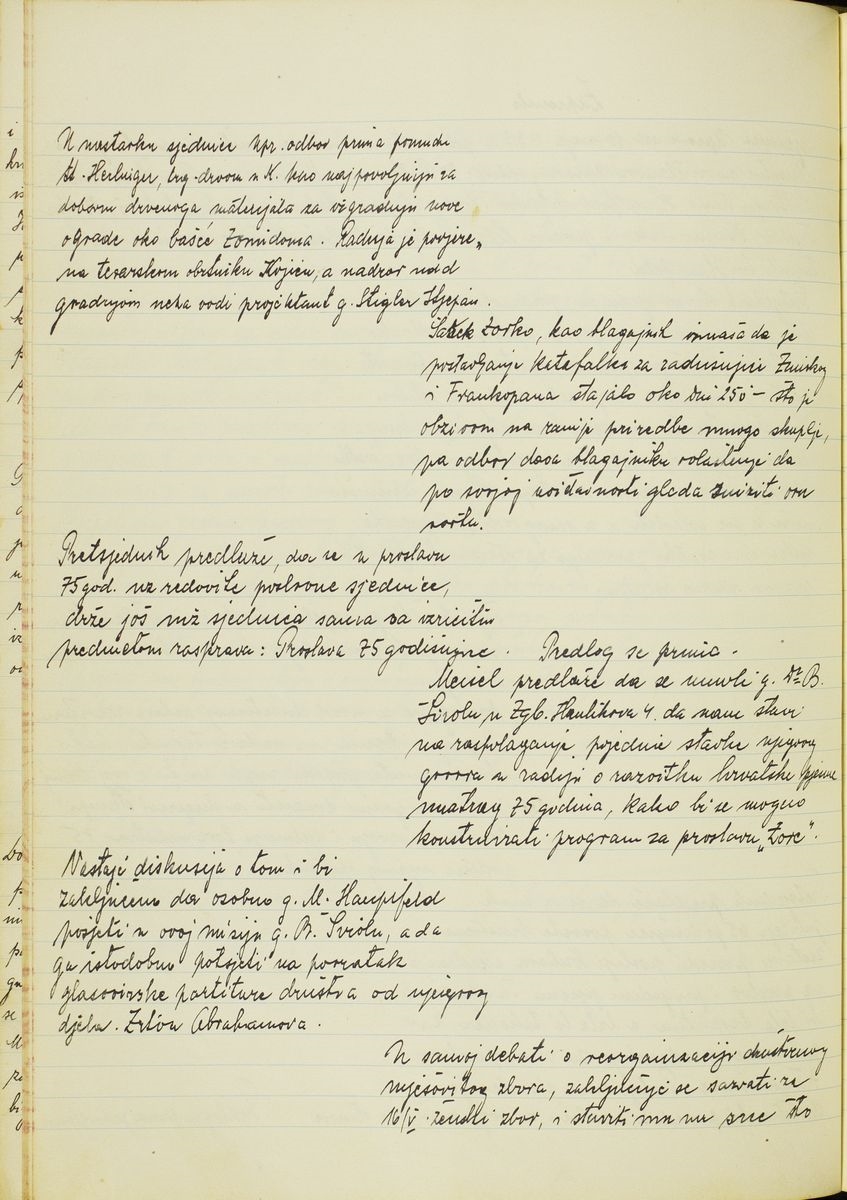 U nastavku sjednice upr. odbor prima ponudu
St. Herlinger, trg. drvom u K. kao najpovoljniju za
dobavu drvenoga materijala za izgradnju nove
ograde oko bašće Zorindoma. Radnja je povjere„
na tesarskom obrtniku Kojiću, a nadzor nad
gradnjom neka vodi projektant g. Stigler Stjepan.
Satek Zorko, kao blagajnik iznaša da je
postavljanje katafalka za zadušnjice Zrinskog
i Frankopana stajalo oko Din 250 – što je
obzirom na ranije priredbe mnogo skuplje,
pa odbor dava blagajniku ovlaštenje da
po svojoj uviđavnosti gleda sniziti ovu
svotu.
Pretsjednik predlaže, da se u proslavu
75 god. uz redovite poslovne sjednice,
drže još niz sjednica sama sa izričitim
predmetom rasprava: Proslava 75 godišnjice. Predlog se prima.
Meisel predlaže da se umoli g. Dr. B.
Širolu u Zgb. Haulikova 4. da nam stavi
na raspolaganje pojedine stavke njegovog
govora u radiju o razvitku hrvatske pjesme
unatrag 75 godina, kako bi se moglo
konstruirati program za proslavu „Zore".
Nastaje diskusija o tom i bi
zaključeno da osobno g. M. Haupfeld
posjeti u ovoj misiji g. B. Širolu, a da
ga istodobno potsjeti na povratak
glasovirske partiture društva od njegovog
djela. Žrtva Abrahamova.
U samoj debati o reorganizaciji društvenog
mješovitog zbora, zaključuje se sazvati za
16/V. ženski zbor, i staviti mu na srce što